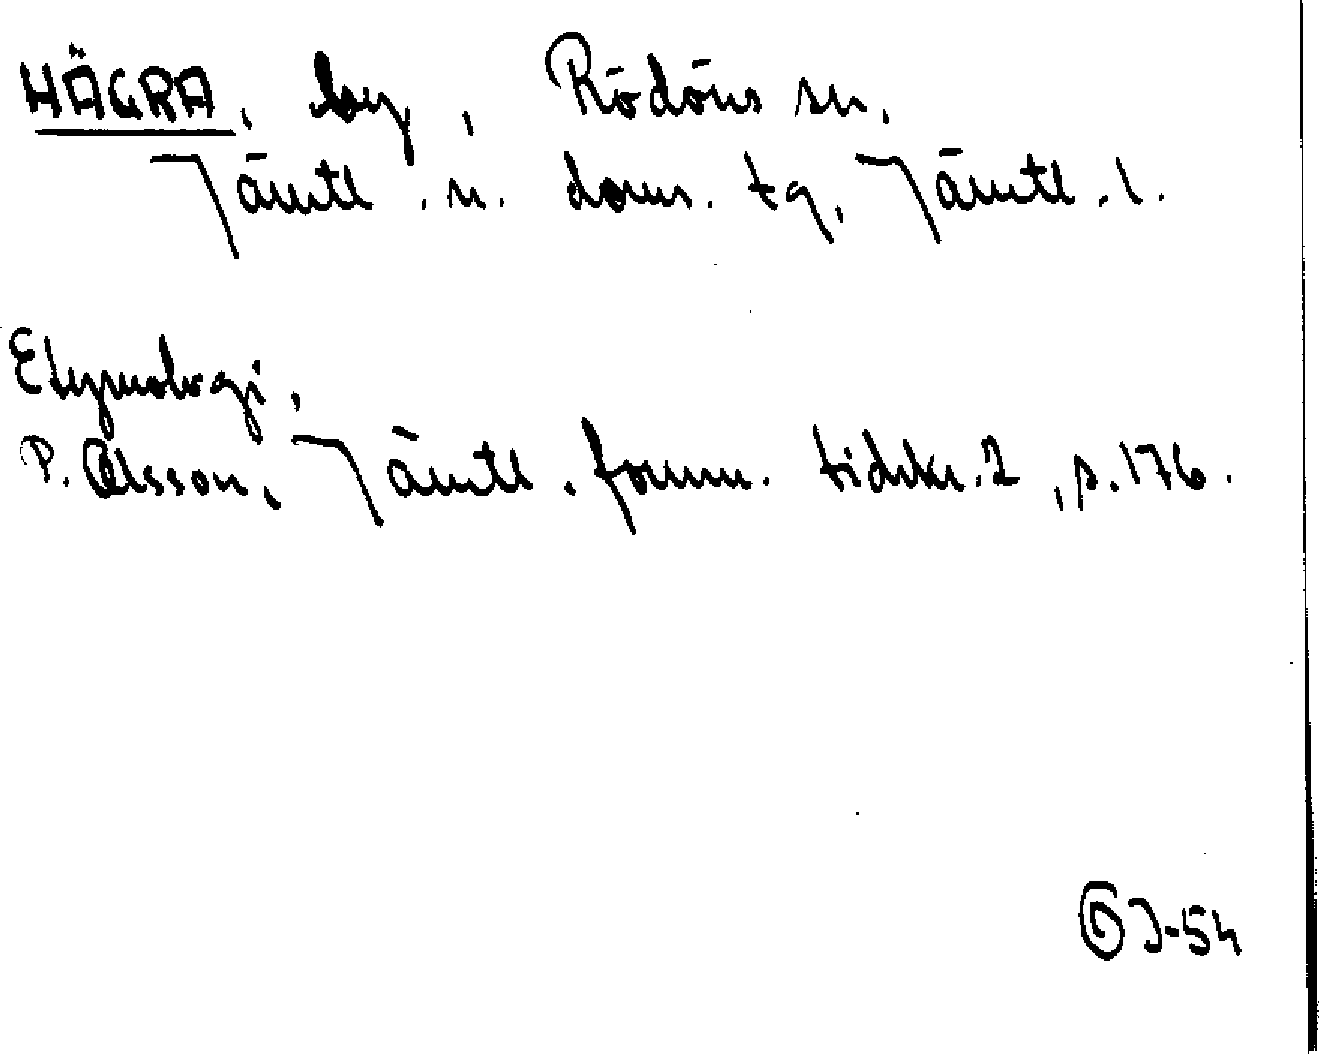 HÄGRA, by, Rödöns sn.
Jämtl. n. doms. tg, Jämtl. l.
Etymologi,
P. Olsson, Jämtl. fornm. tidskr. 2, s. 176.
J-54